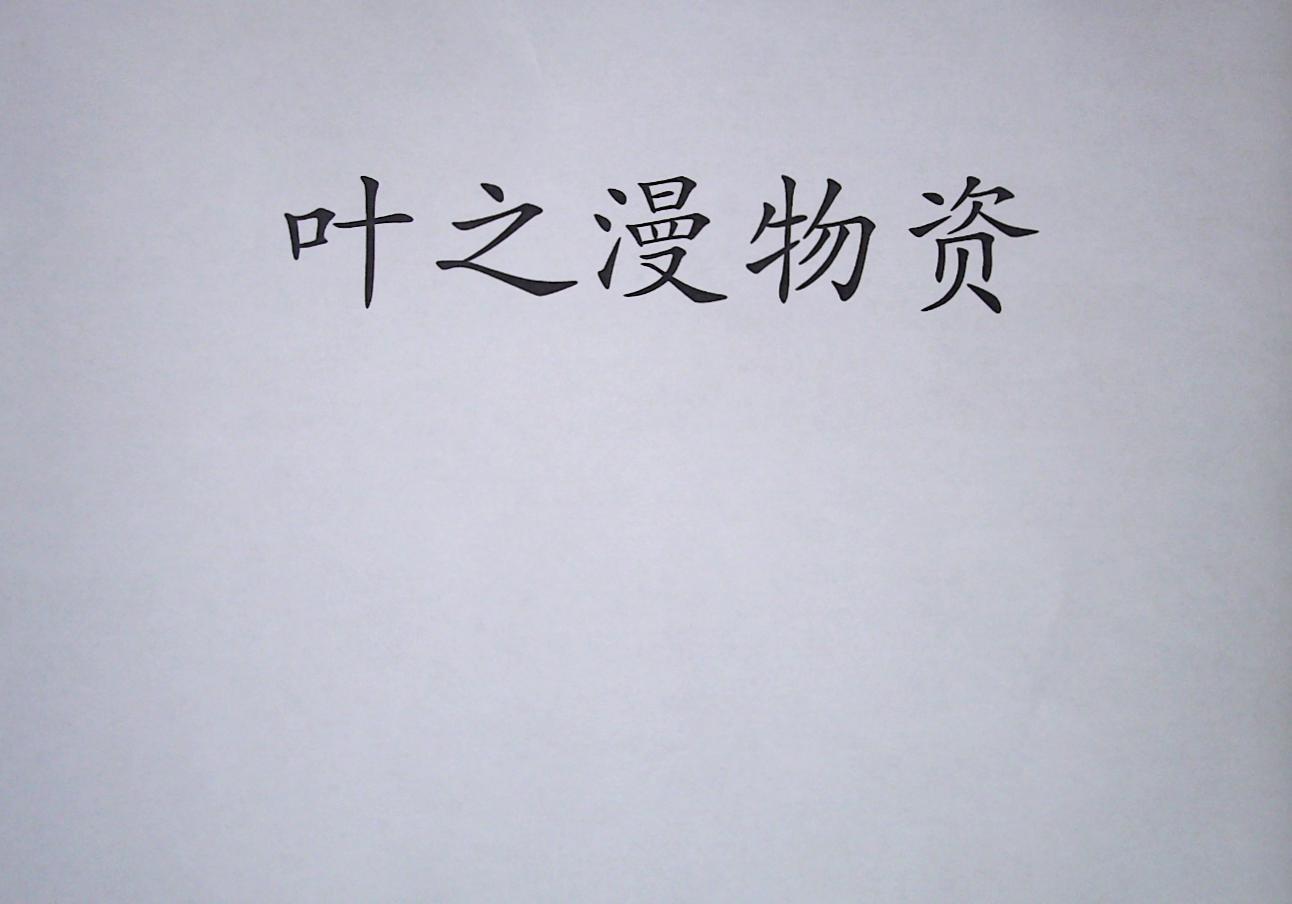 叶之漫物资